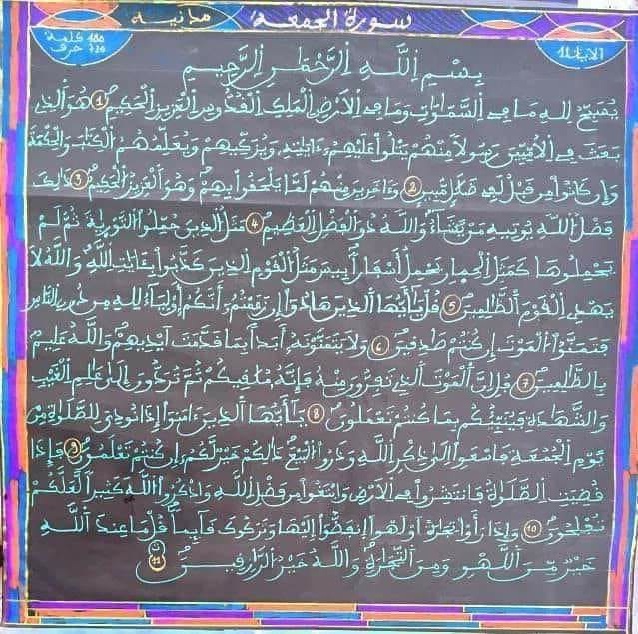 سورة الجمعة مدنية
180 كلمة
720 حرف
الايات 11
بِسْمِ اِللَّهِ اِلرَّحْمَٰنِ اِلرَّحِيمِ
يُسَبِّحُ لِلهِ مَا فِي اِلسَّمَٰوَٰتِ وَمَا فِي اِلَارْضِ اِلْمَلِكِ اِلْقُدُّوسِ اِلْعَزِيزِ اِلْحَكِيمِ 1 هُوَ اَلذِي
بَعَثَ فِي اِلُامِّيِّينَ رَسُولًا مِّنْهُمْ يَتْلُواْ عَلَيْهِمُ ءَايَٰتِهِ وَيُزَكِّيهِمْ وَيُعَلِّمُهُمُ اُلْكِتَٰبَ وَالْحِكْمَةَ
وَإِن كَانُواْ مِن قَبْلُ لَفِي ضَلَٰلٍ مُّبِينٍ 2 وَءَاخَرِينَ مِنْهُمْ لَمَّا يَلْحَقُواْ بِهِمْ وَهُوَ اَلْعَزِيزُ اُلْحَكِيمُ 3 ذَٰلِكَ
فَضْلُ اُللَّهِ يُوتِيهِ مَنْ يَّشَآءُ وَاللَّهُ ذُو اُلْفَضْلِ اِلْعَظِيمِ 4 مَثَلُ اُلذِينَ حُمِّلُواْ اُلتَّوْرَيٰةَ ثُمَّ لَمْ
يَحْمِلُوهَا كَمَثَلِ اِلْحِمَارِ يَحْمِلُ أَسْفَارًا بِيسَ مَثَلُ اُلْقَوْمِ اِلذِينَ كَذَّبُواْ بِـَٔايَٰتِ اِللَّهِ وَاللَّهُ لَا
يَهْدِي اِلْقَوْمَ اَلظَّٰلِمِينَ 5 قُلْ يَٰٓأَيُّهَا اَلذِينَ هَادُواْ إِن زَعَمْتُمُ أَنَّكُمُ أَوْلِيَآءُ لِلهِ مِن دُونِ اِلنَّاسِ
فَتَمَنَّوُاْ اُلْمَوْتَ إِن كُنتُمْ صَٰدِقِينَ 6 وَلَا يَتَمَنَّوْنَهُ أَبَدًا بِمَا قَدَّمَتَ اَيْدِيهِمْ وَاللَّهُ عَلِيمٌ
بِالظَّٰلِمِينَ 7 قُلِ اِنَّ اَلْمَوْتَ اَلذِي تَفِرُّونَ مِنْهُ فَإِنَّهُ مُلَٰقِيكُمْ ثُمَّ تُرَدُّونَ إِلَىٰ عَٰلِمِ اِلْغَيْبِ
وَالشَّهَٰدَةِ فَيُنَبِّئُكُم بِمَا كُنتُمْ تَعْمَلُونَ 8 يَٰٓأَيُّهَا اَلذِينَ ءَامَنُواْ إِذَا نُودِيَ لِلصَّلَوٰةِ مِنْ
يَّوْمِ اِلْجُمُعَةِ فَاسْعَوِاْ اِلَىٰ ذِكْرِ اِللَّهِ وَذَرُواْ اُلْبَيْعَ ذَٰلِكُمْ خَيْرٌ لَّكُمُ إِن كُنتُمْ تَعْلَمُونَ 9 فَإِذَا
قُضِيَتِ اِلصَّلَوٰةُ فَانتَشِرُواْ فِي اِلَارْضِ وَابْتَغُواْ مِن فَضْلِ اِللَّهِ وَاذْكُرُواْ اُللَّهَ كَثِيرًا لَّعَلَّكُمْ
تُفْلِحُونَ 10 وَإِذَا رَأَوْاْ تِجَٰرَةً اَوْ لَهْوًا اِنفَضُّواْ إِلَيْهَا وَتَرَكُوكَ قَآئِمًا قُلْ مَا عِندَ اَللَّهِ
خَيْرٌ مِّنَ اَللَّهْوِ وَمِنَ اَلتِّجَٰرَةِ وَاللَّهُ خَيْرُ اُلرَّٰزِقِينَ 11